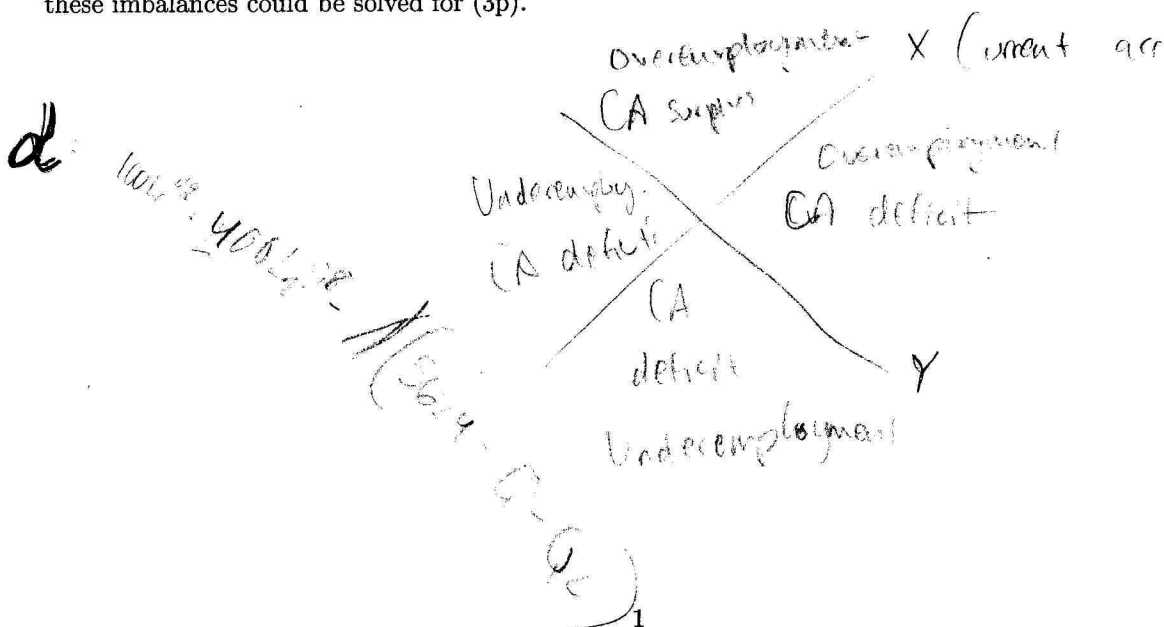 these imbalances could be solved for (3p).
Overemployment X (urrent acc
CA surplus
d:
Overemployment
Underemploy.
CA deficit
CA deficit
CA
deficit
Y
Underemployment
1